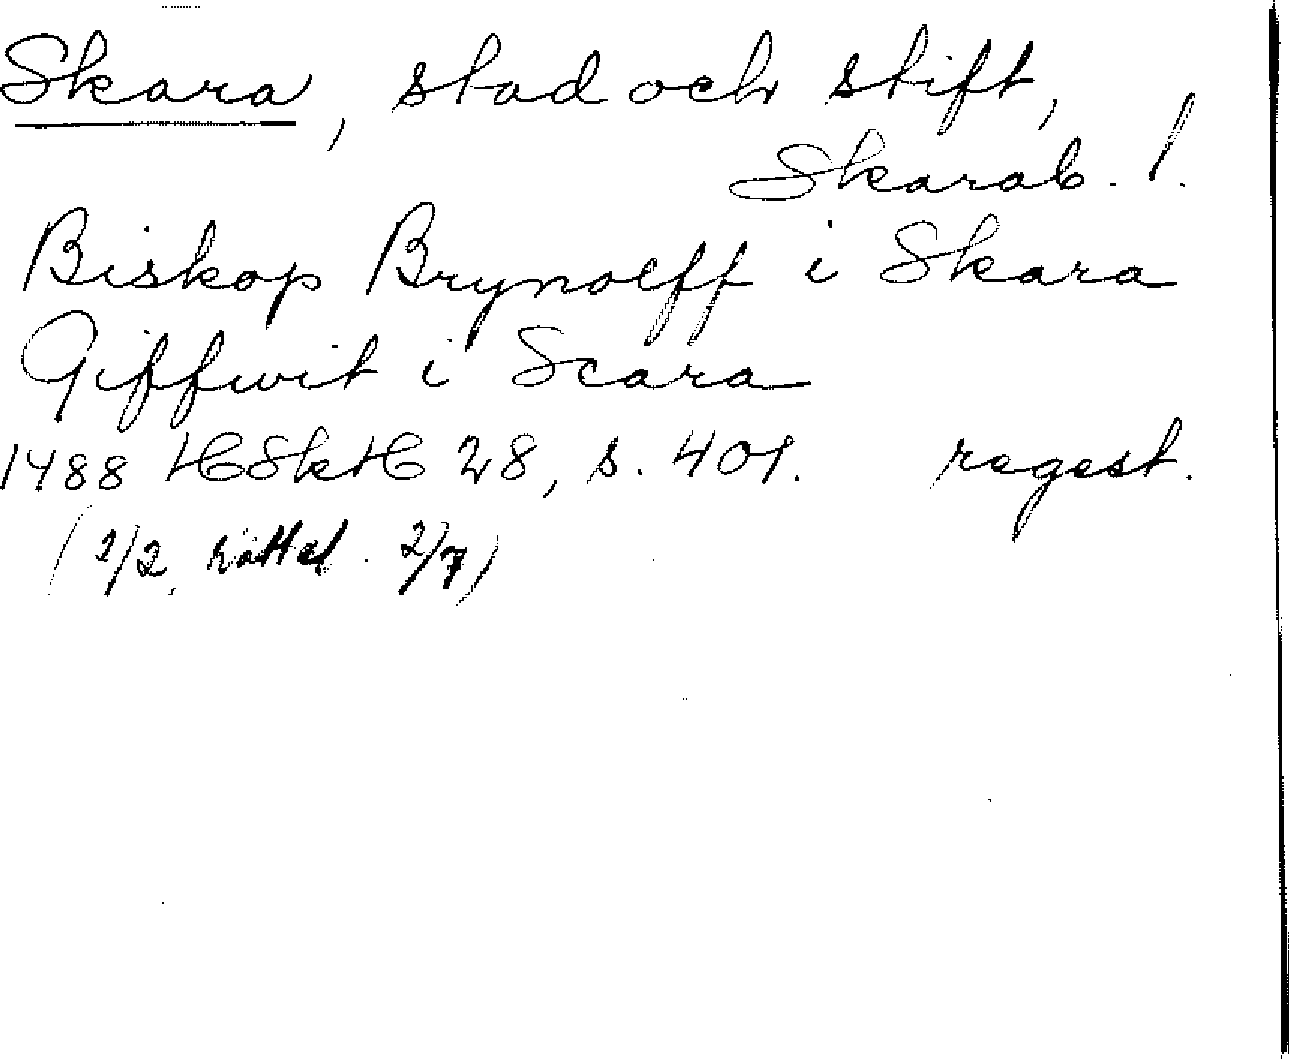 Skara, stad och stift,
Skarab. l.
Biskop Brynolff i Skara
Giffwit i Scara
1488 HSkH 28, s. 401. regest.
(2/2, rättel. 2/7)